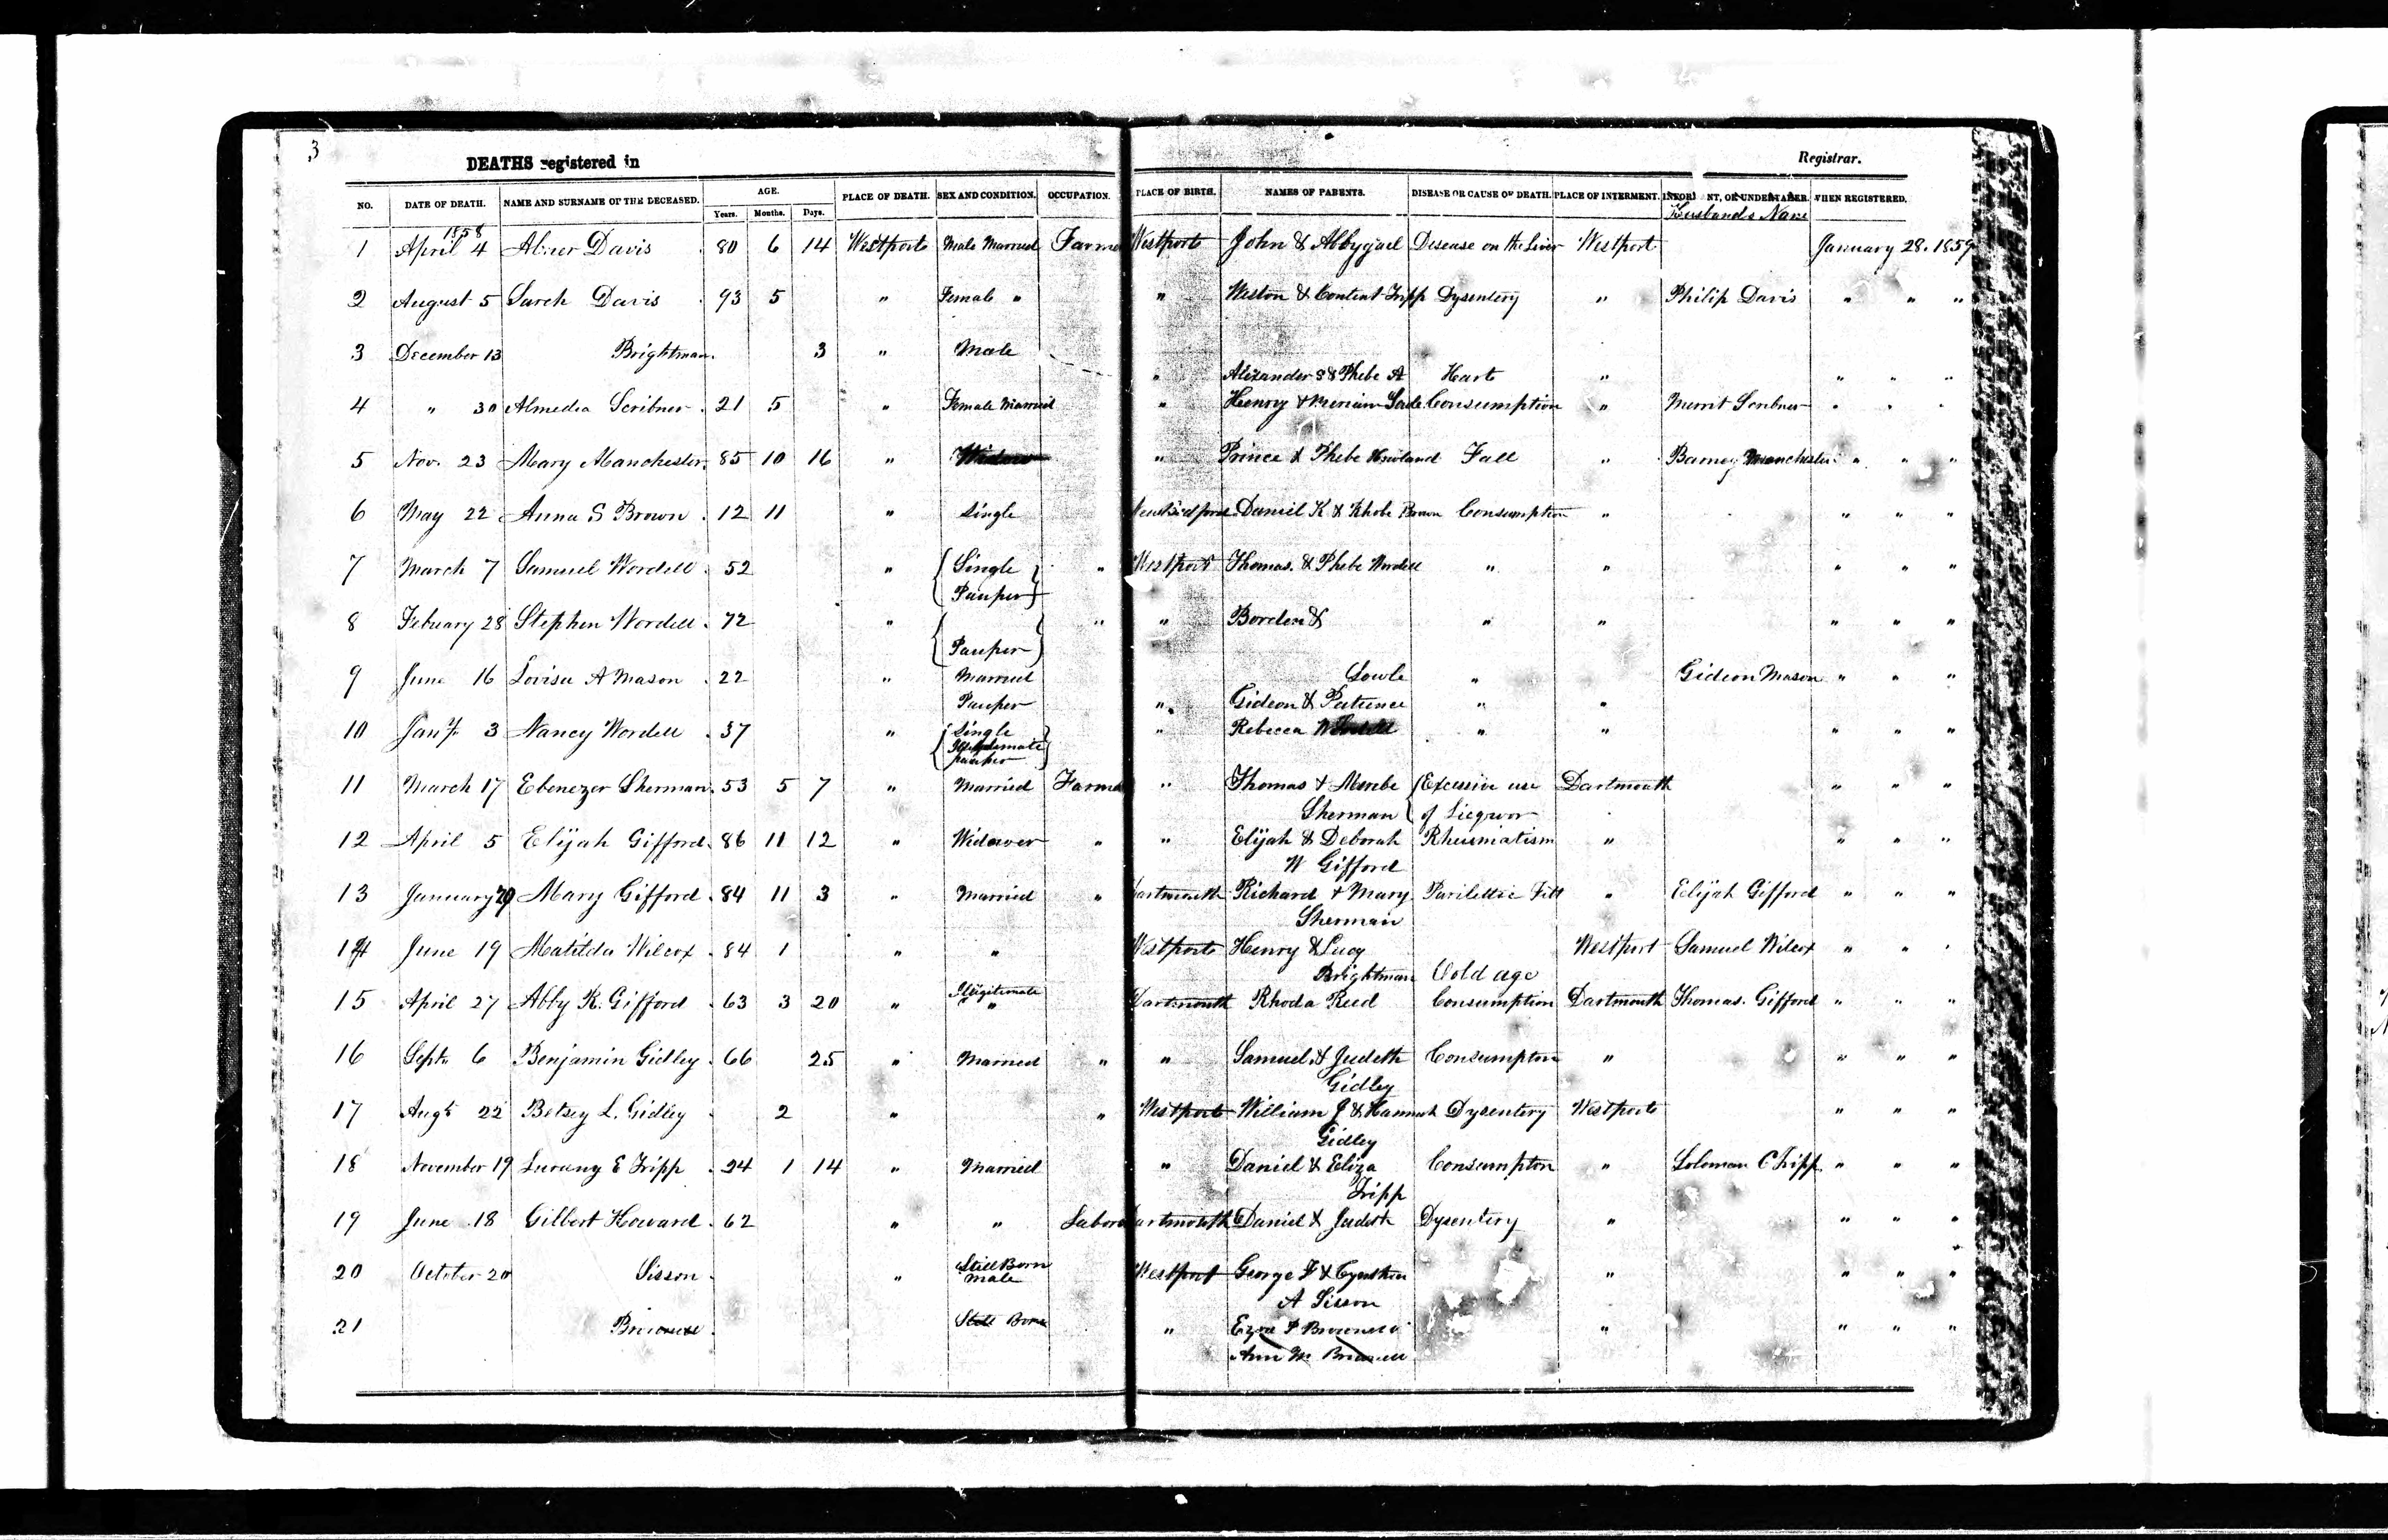 3
DEATHS registered in
Registrar.
NO. DATE OF DEATH. NAME AND SURNAME OF THE DECEASED. AGE. PLACE OF DEATH. SEX AND CONDITION. OCCUPATION. PLACE OF BIRTH. NAMES OF PARENTS. DISEASE OR CAUSE OF DEATH. PLACE OF INTERMENT. NT, OR UNDERTAKER. WHEN REGISTERED.
Years. Months. Days. Husbands Name
1858
1 April 4 Abner Davis 80 6 14 Westport Male Married Farme Westport John & Abbygael Disease on the Liver Westport January 28. 1859
2 August 5 Sarah Davis 93 5 " Female " " Weston & Content Tripp Dysentery " Philip Davis " " "
3 December 13 Brightman 3 " Male
" Alexander S & Phebe A Heart " " " "
4 " 30 Almedia Scribner 21 5 " Female Married " Henry & Consumption " Merrit Scribner " " "
5 Nov. 23 Mary Manchester 85 10 16 " Widow " Prince & Phebe Howland Fall " Barney Manchester " " "
6 May 22 Anna S Brown 12 11 " Single Daniel K & Rhobe Brown Consumption " " " "
7 March 7 Samuel Wordell 52 " Single " Westport Thomas. & Phebe Wordell " " " " "
Pauper
8 Febuary 28 Stephen Wordell 72 " " " Borden & " " " " "
Pauper
9 June 16 Lovisa A Mason 22 " Married Sowle " Gideon Mason " " "
Pauper " Gideon & Patience " "
10 Jany 3 Nancy Wordell 37 " Single " Rebecca " " " " "
pauper
11 March 17 Ebenezer Sherman 53 5 7 " Married Farme " Thomas & Merebe Excessive use Dartmouth " " "
Sherman of Liequor
12 April 5 Elijah Gifford 86 11 12 " Widower " " Elijah & Deborah Rheumatism " " " "
W Gifford
13 January 29 Mary Gifford 84 11 3 " Married " Dartmouth Richard & Mary Parilettic Fitt " Elijah Gifford " " "
Sherman
14 June 19 Matilda Wilcox 84 1 " " Westport Henry & Lucy Westport Samuel Wilcox " " "
Brightman Oold age
15 April 27 Abby R. Gifford 63 3 20 " Illigitimate " Dartmouth Rhoda Reed Consumption Dartmouth Thomas. Gifford " " "
16 Sept. 6 Benjamin Gidley 66 25 " Married " " Samuel & Judeth Consumpton " " " "
Gidley
17 Augt 22 Betsey L. Gidley 2 " " Westport William J & Hannah Dysentery Westport " " "
Gidley
18 November 19 Lurany E Tripp 24 1 14 " Married " Daniel & Eliza Consumpton " Soloman C Tripp " " "
Tripp
19 June 18 Gilbert Howard 62 " " Labore Dartmouth Daniel & Judeth Dysentery " " " "
20 October 20 Sisson " Still Born Male Westport George F & Cynthia " " " "
A Sisson
21 Still Born " " " " "
Ann M